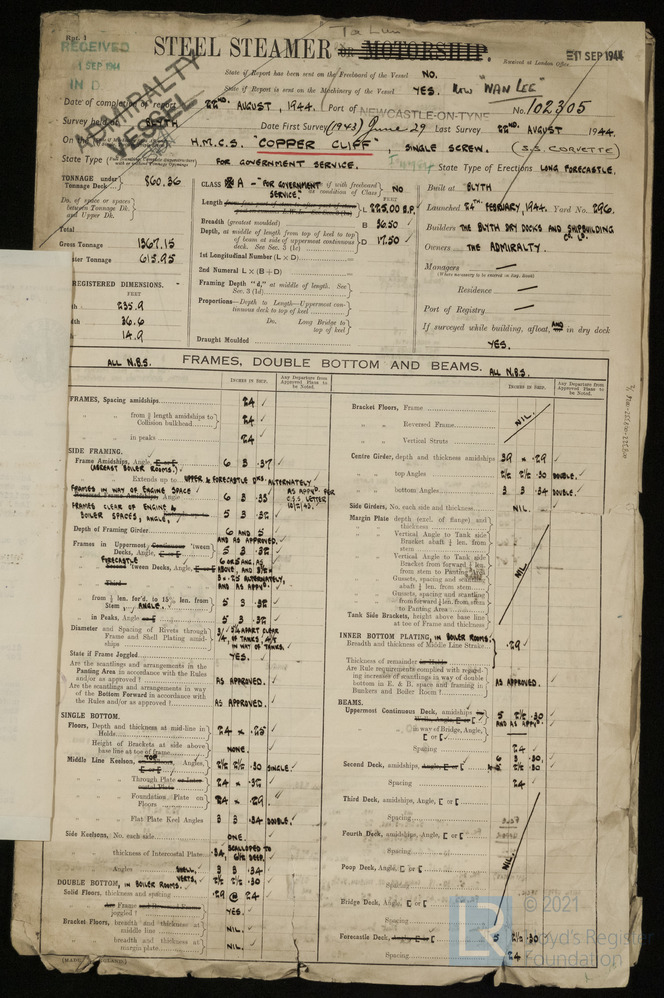 Rpt. 1
RECEIVED
1 SEP 1944
IN D.
ADMIRALTY VESSEL
STEEL STEAMER or MOTORSHIP.
SEP 1944
Received at London Office
State if Report has been sent on the Freeboard of the Vessel NO.
State if Report is sent on the Machinery of the Vessel YES. Now "WAN LEE"
Date of completion of report 22ND. AUGUST, 1944. Port of NEWCASTLE-ON-TYNE No. 102305
Survey held at BLYTH Date First Survey (1943) June 29 Last Survey 22ND. AUGUST 1944.
On the H.M.C.S. "COPPER CLIFF", SINGLE SCREW. (S.S. CORVETTE)
State Type FOR GOVERNMENT SERVICE. State Type of Erections LONG FORECASTLE.
TONNAGE under Tonnage Deck 860.36
Do. of space or spaces between Tonnage Dk. and Upper Dk.
Total
Gross Tonnage 1367.15
ster Tonnage 615.95
REGISTERED DIMENSIONS.
FEET
235.9
36.6
14.9
CLASS A - "FOR GOVERNMENT SERVICE." if with freeboard as condition of Class NO
Length L 225.00 B.P.
Breadth (greatest moulded) B 36.50
Depth, at middle of length from top of keel to top of beam at side of uppermost continuous deck. See Sec. 3 (1c) D 17.50
1st Longitudinal Number (L × D)
2nd Numeral L × (B + D)
Framing Depth "d," at middle of length. See Sec. 3 (1d)
Proportions—Depth to Length—Uppermost continuous deck to top of keel
Do. Long Bridge to top of keel
Draught Moulded
Built at BLYTH
Launched 24TH. FEBRUARY, 1944. Yard No. 296.
Builders THE BLYTH DRY DOCKS AND SHIPBUILDING CO. LD.
Owners THE ADMIRALTY.
Managers —
(Where necessary to be entered in Reg. Book)
Residence —
Port of Registry —
If surveyed while building, afloat, and in dry dock
YES.
ALL N.B.S. FRAMES, DOUBLE BOTTOM AND BEAMS. ALL N.B.S.
INCHES IN SHIP. Any Departure from Approved Plans to be Noted.
FRAMES, Spacing amidships 24
" " from ⅗ length amidships to Collision bulkhead 24
" " in peaks 24
SIDE FRAMING.
Frame Amidships, Angle, E or E 6 3 .37
(ABREAST BOILER ROOMS.)
Extends up to UPPER & FORECASTLE DKS. ALTERNATELY
FRAMES IN WAY OF ENGINE SPACE
Angle 6 3 .35 AS APPD. FOR C.S.S. LETTER
FRAMES CLEAR OF ENGINE & BOILER SPACES, ANGLE, 5 3 .32
Depth of Framing Girder 6 AND 5 AND AS APPROVED.
Frames in Uppermost Continuous 'tween Decks, Angle, E or E 5 3 .32
FORECASTLE 'tween Decks, Angle, E or E 6 OR 5 ANG. AS ABOVE, AND 3½ × 3 × .25 ALTERNATELY, AND AS APPD.
Third
" from ⅗ len. for'd. to 15% len. from Stem, ANGLE. 5 3 .32
" in Peaks, Angle 5 3 .32
Diameter and Spacing of Rivets through Frame and Shell Plating amidships
State if Frame Joggled YES.
Are the scantlings and arrangements in the Panting Area in accordance with the Rules and/or as approved? AS APPROVED.
Are the scantlings and arrangements in way of the Bottom Forward in accordance with the Rules and/or as approved? AS APPROVED.
SINGLE BOTTOM.
Floors, Depth and thickness at mid-line in Holds 24 × .25
" Height of Brackets at side above base line at toe of frame NONE.
Middle Line Keelson, TOP Angles, E or E 2½ 2½ .30 SINGLE.
" Through Plate 24 × .32
" Foundation Plate on Floors 24 × .29
" Flat Plate Keel Angles 3 3 .34 DOUBLE.
Side Keelsons, No. each side ONE.
" thickness of Intercostal Plate .34, SCALLOPED TO 6½ DEEP.
" Angles SHELL, 3 3 .34
VERTS. 2½ 2½ .30
DOUBLE BOTTOM, IN BOILER ROOMS.
Solid Floors, thickness and spacing .29 @ 24
Are Frame joggled? YES.
Bracket Floors, breadth and thickness at middle line NIL.
" breadth and thickness at margin plate NIL.
INCHES IN SHIP. Any Departure from Approved Plans to be Noted.
Bracket Floors, Frame
" " Reversed Frame NIL.
" " Vertical Struts
Centre Girder, depth and thickness amidships 39 × .29
" " top Angles 2½ 2½ .30 DOUBLE.
" " bottom Angles 3 3 .34 DOUBLE.
Side Girders, No. each side and thickness NIL.
Margin Plate depth (excl. of flange) and thickness
" Vertical Angle to Tank side Bracket abaft ¼ len. from stem
" Vertical Angle to Tank side Bracket from forward ¼ len. from stem to Panting Area NIL
" Gussets, spacing and scantling abaft ¼ len. from stem
" Gussets, spacing and scantling from forward ¼ len. from stem to Panting Area
Tank Side Brackets, height above base line at toe of Frame and thickness
INNER BOTTOM PLATING, IN BOILER ROOMS.
Breadth and thickness of Middle Line Strake .29
Thickness of remainder in Holds
Are Rule requirements complied with regarding increases of scantlings in way of double bottom in E. & B. space and framing in Bunkers and Boiler Room? AS APPROVED.
BEAMS.
Uppermost Continuous Deck, amidships 5 2½ .30 AND AS APPD.
" " in way of Bridge, Angle, [ or [
Spacing 24
Second Deck, amidships, Angle, [ or [ 6 3 .30
Spacing 24
Third Deck, amidships, Angle, [ or [
Spacing
Fourth Deck, amidships, Angle, [ or [
Spacing NIL.
Poop Deck, Angle, [ or [
Spacing
Bridge Deck, Angle, [ or [
Spacing
Forecastle Deck, Angle, [ or [ 5 2½ .30
Spacing 24
© 2021
Lloyd's Register
Foundation
LR